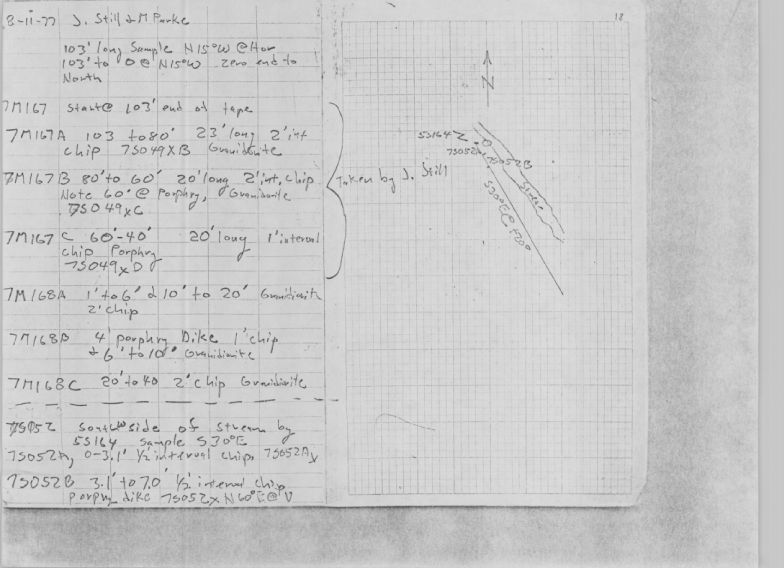 8-11-77 J. Still & M Parke
103' long Sample N15°W @ Hor
103' to 0 @ N15°W zero end to
North
7M167 start @ 103' end of tape
7M167A 103 to 80' 23' long 2' int
chip 7S049XB Granidiorite
7M167B 80' to 60' 20' long 2' int, chip
Note 60' @ Porphry, Granidiorite
7S049XC
7M167C 60'-40' 20' long 1' interval
chip Porphry
7S049XD
Taken by J. Still
7M168A 1' to 6' & 10' to 20' Granidiorite
2' chip
7M168B 4' porphry Dike 1' chip
& 6' to 10' Granidiorite
7M168C 20' to 40 2' chip Granidiorite
7S052 side of stream by
5S164 sample S30°E
7S052A, 0-3.1' 1/2' interval chips 7S052A
7S052B 3.1' to 7.0' 1/2' interval chip
porphry dike 7S052X N60°E @ V
18
N
5S164
7S052A
7S052B